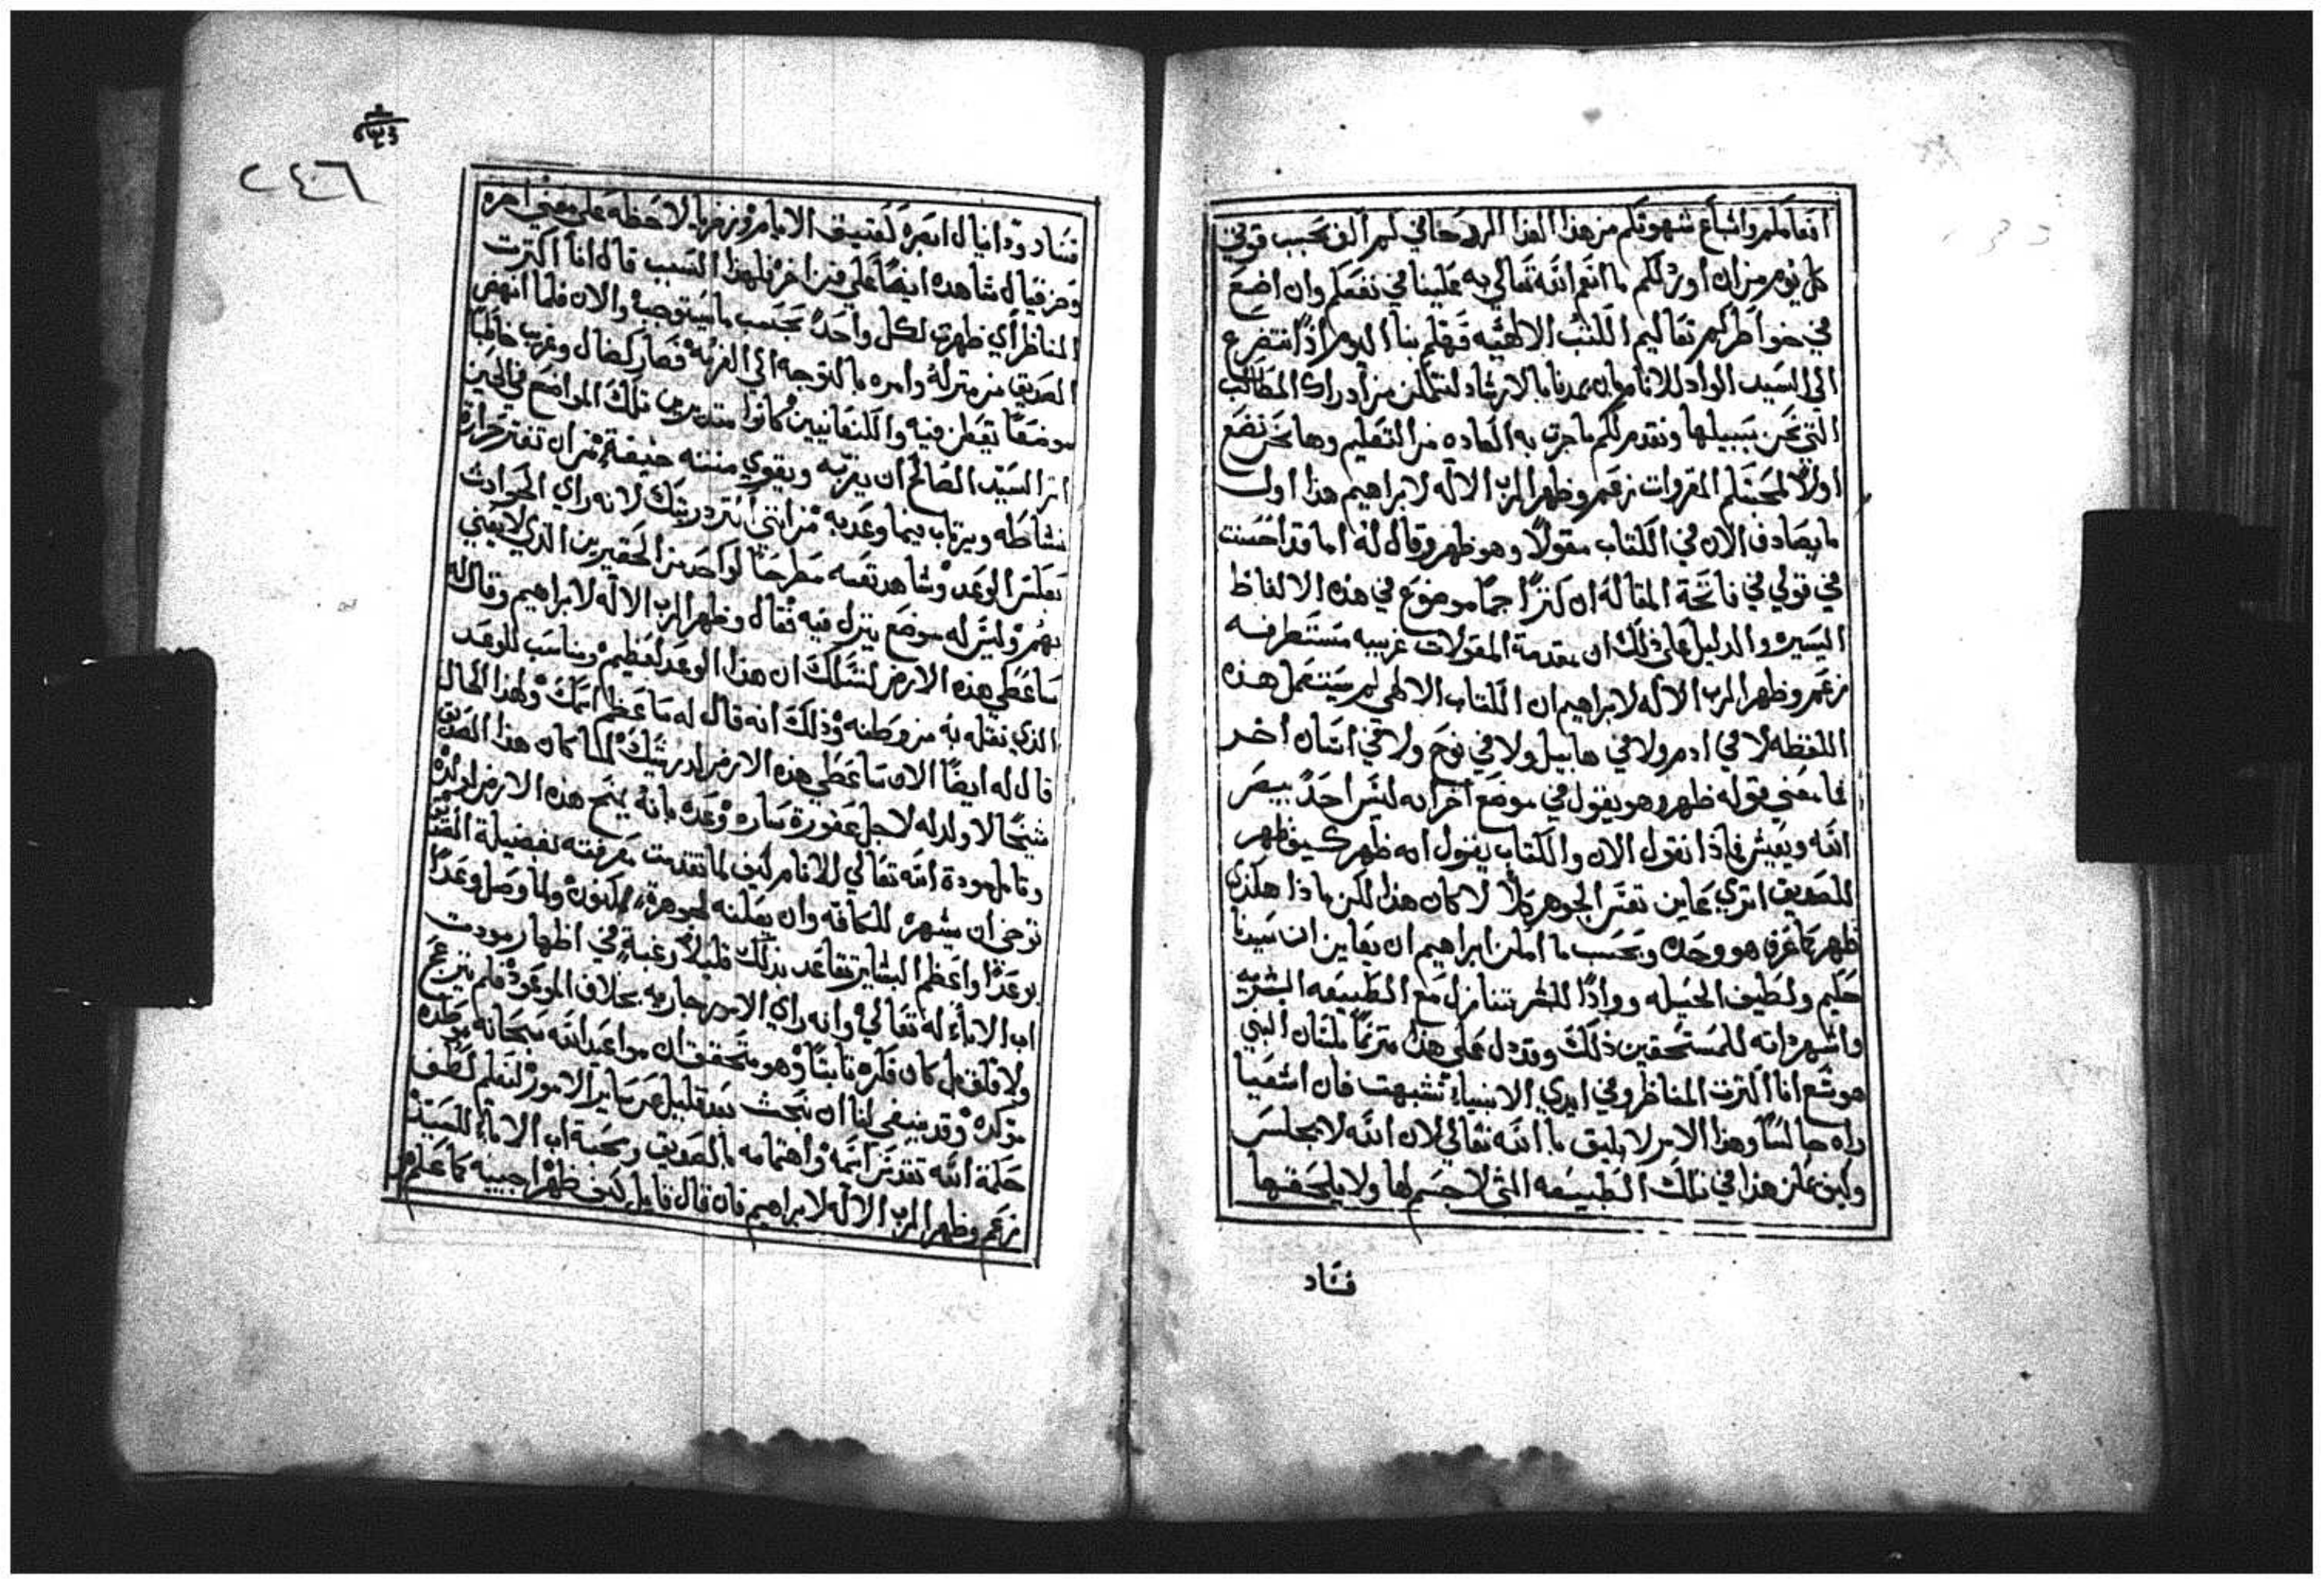 كل يوم من ان اورد لكم ما انعم الله تعالي به علينا في نفعكم وان اضع
في خواطركم تعاليم الكتب الالهيه فهلم بنا اليوم اذًا نتضرع
الي السيد الواد للانام بان يمدنا بالارشاد لنتمكن من ادراك المطالب
التي نحن بسبيلها ونقدم لكم ما جرت به العاده من التعليم وها نحن نضع
اولاً لمحبتكم المقروات زعم وظهر الرب الاله لابراهيم هذا اول
ما يصادف الان في الكتاب مقولاً وهو ظهر وقال له اما قد احسنت
في قولي في فاتحة المقاله ان كنزًا جمًا موضوع في هذه الالفاظ
اليسيره والدليل علي ذلك ان مقدمة المقولات غريبه مستطرفه
زعم وظهر الرب الاله لابراهيم ان الكتاب الالهي لم يستعمل هذه
اللفظه لا في ادم ولا في هابيل ولا في نوح ولا في انسان اخر
فما معني قوله ظهر وهو يقول في موضع اخر انه ليس احدً يبصر
الله ويعيش فماذا نقول الان والكتاب يقول انه ظهر كيف ظهر
للصديق اتري عاين نفس الجوهر كلا لا كان هذا لكن ماذا هكذي
ظهر كما عرف هو وحده وبحسب ما امكن ابراهيم ان يعاين ان سيدنا
حكيم ولطيف الحيله ووادًا للبشر تنازل مع الطبيعه البشريه
واشهر ذاته للمستحقين ذلك وقد دل علي هذا مترنمًا بلسان النبي
هوشع انا اكثرت المناظر وفي ايدي الانبياء تشبهت فان اشعيا
راه جالسًا وهذا الامر لا يليق بالله تعالي لان الله لا يجلس
وكيف يمكن هذا في تلك الطبيعه التي لا جسم لها ولا يلحقها
فساد
فساد ودانيال ابصره كعتيق الايام وزخريا لاحظه علي معني اخره
وحزقيال شاهده ايضًا علي فن اخر فلهذا السبب قال انا اكثرت
المناظر أي ظهرت لكل واحدً بحسب ما يستوجبه والان فلما انهض
الصديق من منزله وامره بالتوجه الي الغربه فصار كضال وغريب طالبًا
موضعًا يقطن فيه والكنعانيين كانوا متديرين تلك المواضع في الحين
اثر السيد الصالح ان يعزيه ويقوي منته خيفة من ان تفتر حرارة
نشاطه ويرتاب فيما وعد به من انني أُثير ذريتك لانه راي الحوادث
بعكس الوعد وشاهد نفسه مطرحًا كواحد من الحقيرين الذي لا يعتني
بهم وليس له موضع ينزل فيه فقال وظهر الرب الاله لابراهيم وقال له
ساعطي هذه الارض لنسلك ان هذا الوعد لعظيم ومناسب للوعد
الذي نقله به من وطنه وذلك انه قال له ساعظم اسمك ولهذا الحال
قال له ايضًا الان ساعطي هذه الارض لذريتك لما كان هذا الصديق
شيخًا لا ولد له لاجل عقورة ساره وعده بانه يمنح هذه الارض لولده
وتامل مودة الله تعالي للانام كيف لما تقدمت معرفته بفضيلة الصديق
توخي ان يشهره للكافه وان يعلنه كجوهرة مكنونه ولما وصل وعدًا
بوعدً واعظم البشاير تقاعد بذلك قليلاً رغبة في اظهار مودت
اب الاباء له تعالي وانه راي الامور جاريه بخلاف الموعود فلم ينزعج
ولا قلق بل كان فكره ثابتًا وهو متحقق ان مواعيد الله سبحانه موطده
موكده وقد ينبغي لنا ان نبحث بعد قليل عن ساير الامور لنعلم لطف
حكمة الله تقدس اسمه واهتمامه بالصديق ومحبة اب الاباء للسيد
زعم وظهر الرب الاله لابراهيم فان قال قايل كيف ظهر اجيبه كما علم
٢٤٦